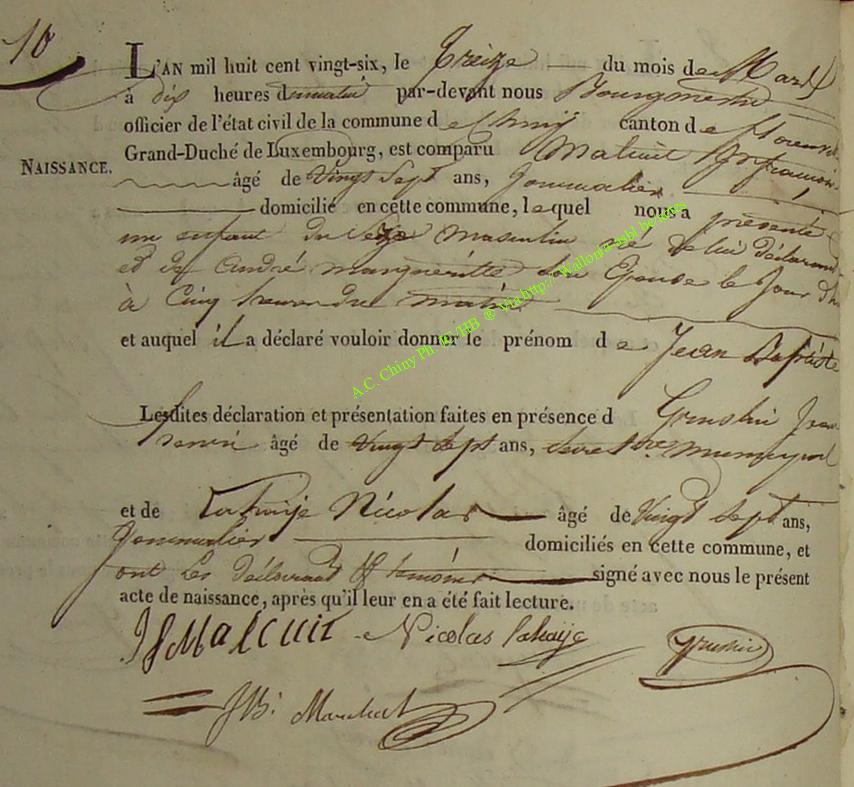 10
L'AN mil huit cent vingt-six, le Treize du mois de Mars
à dix heures du matin par-devant nous Bourgmestre
officier de l'état civil de la commune de Chiny canton de Florenville
Grand-Duché de Luxembourg, est comparu Malcuit Jn françois
NAISSANCE.
âgé de Vingt Sept ans, Journalier
domicilié en cette commune, lequel nous a présenté
un enfant du Sexe Masculin né de lui déclarant
et de André Margueritte son Epouse le jour d'h
à Cinq heures du matin
et auquel il a déclaré vouloir donner le prénom de Jean Baptiste
Lesdites déclaration et présentation faites en présence d Jean
henri âgé de Vingt Sept ans, municipal
et de Lahaije Nicolas âgé de Vingt Sept ans,
Journalier domiciliés en cette commune, et
ont les déclarant et temoins signé avec nous le présent
acte de naissance, après qu'il leur en a été fait lecture.
JF Malcuit Nicolas lahaije
JB: Marchal
A.C. Chiny Ph. ® Via http://Wallonia